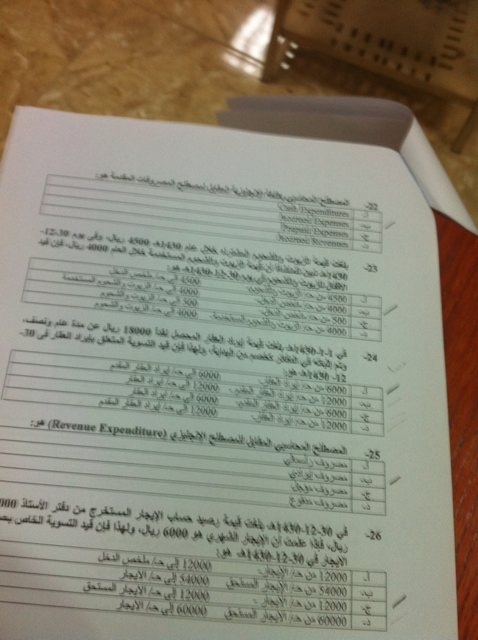 22- المصطلح المحاسبي باللغة الإنجليزية المقابل لمصطلح المصروفات المقدمة هو:
أ. Cash Expenditures
ب. Accrued Expenses
ج. Prepaid Expenses
د. Accrued Revenues
23- بلغت قيمة الزيوت والشحوم المشتراة خلال عام 1430هـ 4500 ريال، وفي يوم 30-12-
1430هـ تبين للمنشأة أن قيمة الزيوت والشحوم المستخدمة خلال العام 4000 ريال، فإن قيد
الإقفال للزيوت والشحوم في يوم 30-12-1430هـ هو:
أ. 4500 من حـ/ 4500 إلى حـ/ ملخص الدخل
ب. 4000 من حـ/ ملخص الدخل 4000 إلى حـ/ الزيوت والشحوم المستخدمة
ج. 500 من حـ/ ملخص الدخل 500 إلى حـ/ الزيوت والشحوم
د. 4000 من حـ/ الزيوت والشحوم المستخدمة 4000 إلى حـ/ الزيوت والشحوم
24- في 1-1-1430هـ بلغت قيمة إيراد العقار المحصل نقداً 18000 ريال عن مدة عام ونصف،
وتم إثباته في الدفاتر كخصم من البداية، ولهذا فإن قيد التسوية المتعلق بإيراد العقار في 30-
12-1430هـ هو:
أ. 6000 من حـ/ إيراد العقار 6000 إلى حـ/ إيراد العقار المقدم
ب. 12000 من حـ/ إيراد العقار المقدم 12000 إلى حـ/ إيراد العقار
ج. 6000 من حـ/ إيراد العقار المقدم 6000 إلى حـ/ إيراد العقار
د. 12000 من حـ/ إيراد العقار 12000 إلى حـ/ إيراد العقار المقدم
25- المصطلح المحاسبي المقابل للمصطلح الإنجليزي (Revenue Expenditure) هو:
أ. مصروف رأسمالي
ب. مصروف إيرادي
ج. مصروف مؤجل
د. مصروف مدفوع
26- في 30-12-1430هـ بلغت قيمة رصيد حساب الإيجار المستخرج من دفتر الأستاذ
ريال، فإذا علمت أن الإيجار الشهري هو 6000 ريال، ولهذا فإن قيد التسوية الخاص
الإيجار في 30-12-1430هـ هو:
أ. 12000 من حـ/ الإيجار 12000 إلى حـ/ ملخص الدخل
ب. 54000 من حـ/ الإيجار المستحق 54000 إلى حـ/ الإيجار
ج. 12000 من حـ/ الإيجار 12000 إلى حـ/ الإيجار المستحق
د. 60000 من حـ/ الإيجار المستحق 60000 إلى حـ/ الإيجار